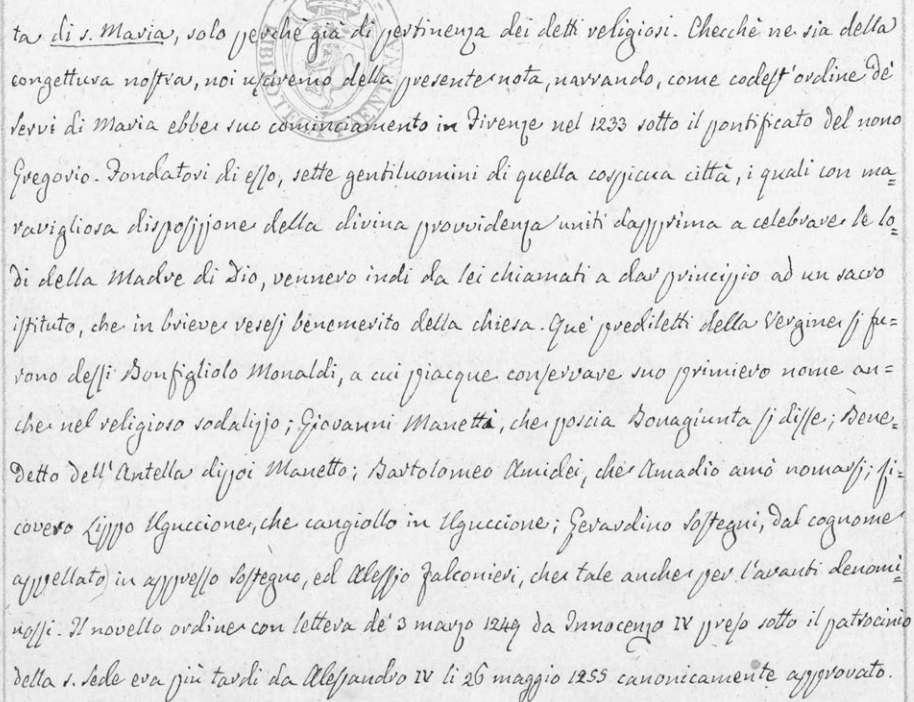 ta di s. Maria, solo perchè già di pertinenza dei detti religiosi. Checchè ne sia della
congettura nostra, noi usciremo della presente nota, narrando, come codest'ordine de'
servi di Maria ebbe suo cominciamento in Firenze nel 1233 sotto il pontificato del nono
Gregorio. Fondatori di esso, sette gentiluomini di quella cospicua città, i quali con ma=
ravigliosa disposizione della divina provvidenza uniti dapprima a celebrare le lo=
di della Madre di Dio, vennero indi da lei chiamati a dar principio ad un sacro
istituto, che in brieve resesi benemerito della chiesa. Que' prediletti della Vergine si fu=
rono dessi Bonfigliolo Monaldi, a cui piacque conservare suo primiero nome an=
che nel religioso sodalizio; Giovanni Manetti, che poscia Bonagiunta si disse; Bene=
detto dell'Antella dipoi Manetto; Bartolomeo Amidei, che Amadio amò nomarsi; Ri=
covero Lippo Uguccione, che cangiollo in Uguccione; Gerardino Sostegni, dal cognome
appellato in appresso Sostegno, ed Alessio Falconieri, che tale anche per l'avanti denomi=
nossi. Il novello ordine con lettera de' 3 marzo 1249 da Innocenzo IV preso sotto il patrocinio
della s. Sede era più tardi da Alessandro IV li 26 maggio 1255 canonicamente approvato.